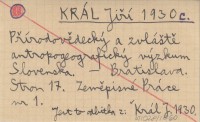 KRÁL Jiří 1930c.
Přírodovědecký a zvláště
antropogeografický výzkum
Slovenska. - Bratislava.
Stron 17. Zeměpisné Práce
nr 1.
Jest to odbitka z: Král J. 1930.